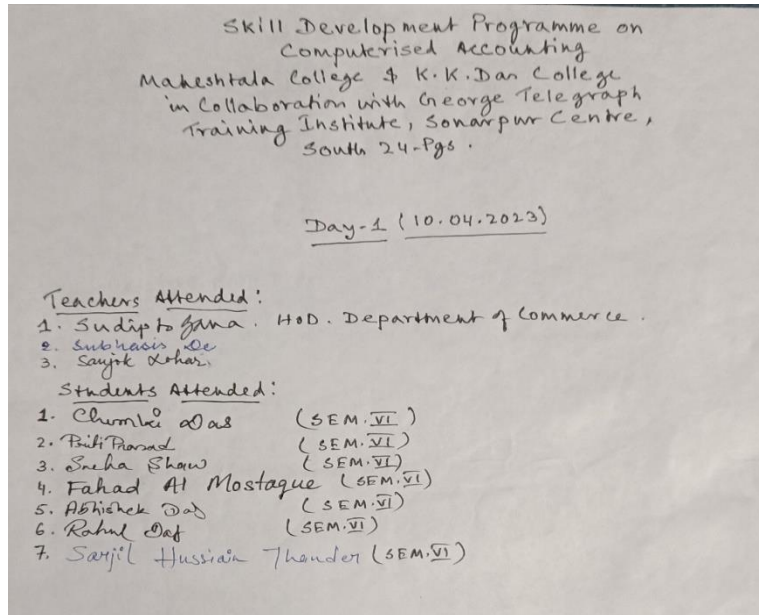 Skill Development Programme on
Computerised Accounting
Maheshtala College & K.K.Das College
in Collaboration with George Telegraph
Training Institute, Sonarpur Centre,
South 24-Pgs.
Day-1 (10.04.2023)
Teachers Attended:
1. Sudipto Jana. HoD. Department of Commerce.
2. Subhasis De
3. Sanjok Lohar.
Students Attended:
1. Chumki Das (SEM.VI)
2. Priti Prasad (SEM.VI)
3. Sneha Shaw (SEM.VI)
4. Fahad Al Mostaque (SEM.VI)
5. Abhishek Das (SEM.VI)
6. Rahul Das (SEM.VI)
7. Sarjil Hussiain Thander (SEM.VI)